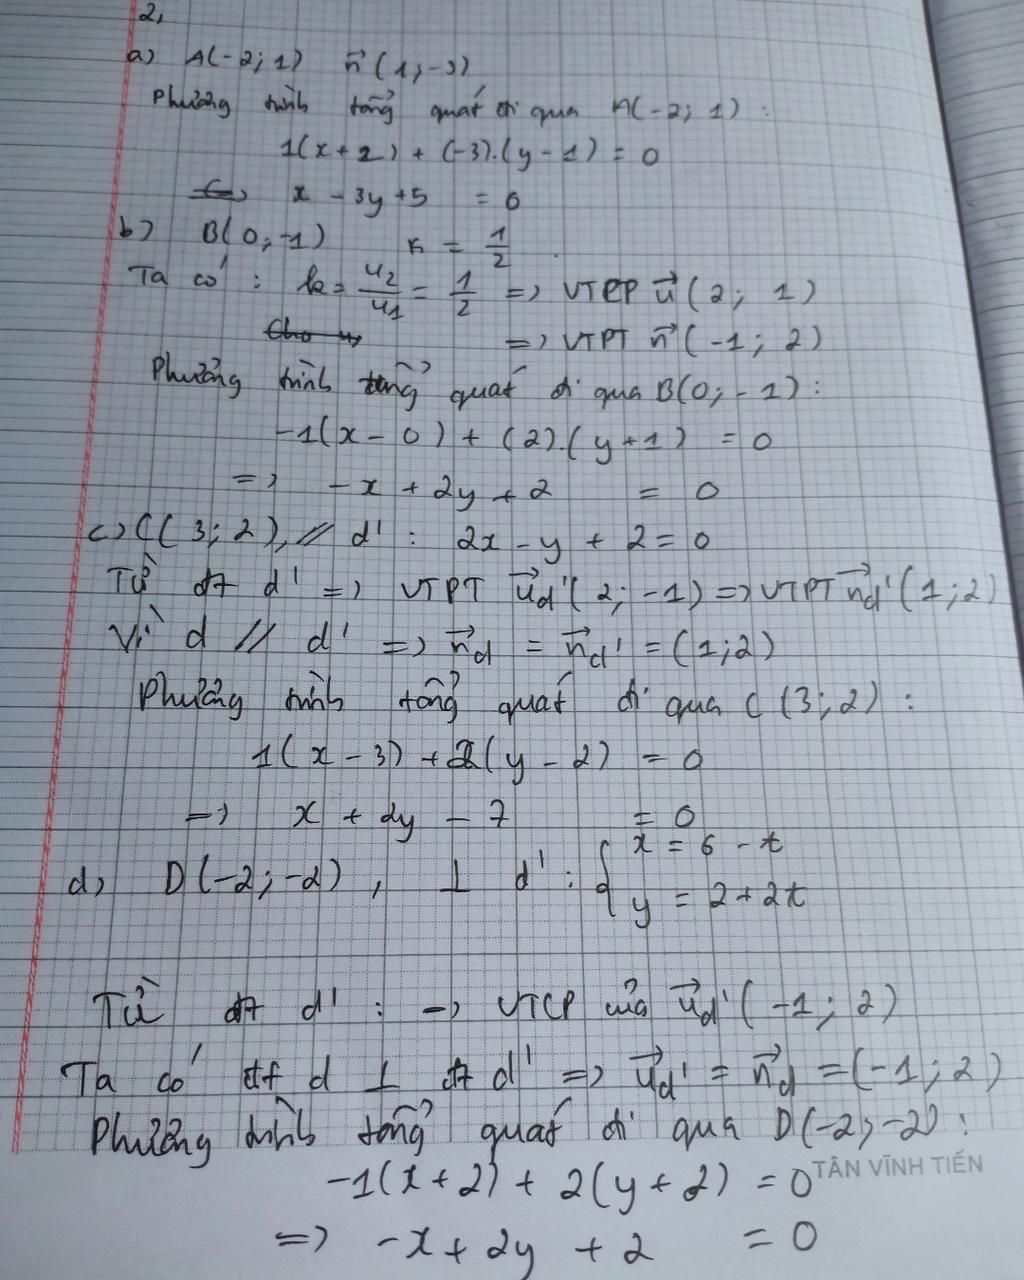 2,
a) A(-2; 1) n⃗(1; -3)
Phương trình tổng quát đi qua A(-2; 1) :
1(x + 2) + (-3).(y - 1) = 0
<=> x - 3y + 5 = 0
b) B(0; -1) k = 1/2
Ta có : k = u2/u1 = 1/2 => VTCP u⃗(2; 1)
=> VTPT n⃗(-1; 2)
Phương trình tổng quát đi qua B(0; -1) :
-1(x - 0) + (2).(y + 1) = 0
=> -x + 2y + 2 = 0
c) C(3; 2), // d' : 2x - y + 2 = 0
Từ đt d' => VTPT u⃗d'(2; -1) => VTPT n⃗d'(1; 2)
Vì d // d' => n⃗d = n⃗d' = (1; 2)
Phương trình tổng quát đi qua C (3; 2) :
1(x - 3) + 2(y - 2) = 0
=> x + 2y - 7 = 0
d) D(-2; -2), ⊥ d' : { x = 6 - t
y = 2 + 2t
Từ đt d' : -> VTCP của u⃗d'(-1; 2)
Ta có đt d ⊥ đt d' => u⃗d' = n⃗d = (-1; 2)
Phương trình tổng quát đi qua D(-2; -2) :
-1(x + 2) + 2(y + 2) = 0
TÂN VĨNH TIẾN
=> -x + 2y + 2 = 0